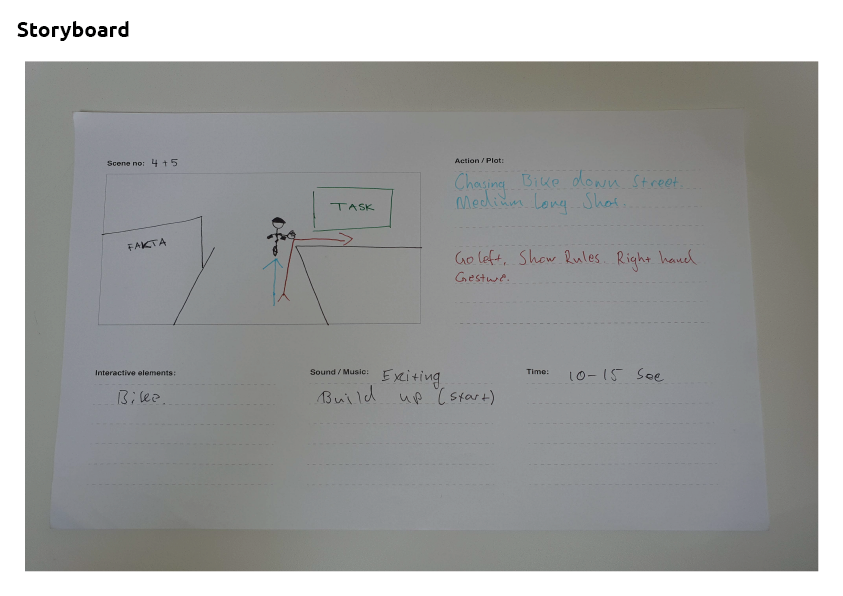 Storyboard
Scene no: 4+5
FAKTA
TASK
Action / Plot:
Chasing Bike down Street.
Medium Long Shot.
Go left, Show Rules. Right hand
Gesture.
Interactive elements:
Bike.
Sound / Music: Exiting
Build up (start)
Time: 10-15 Sec